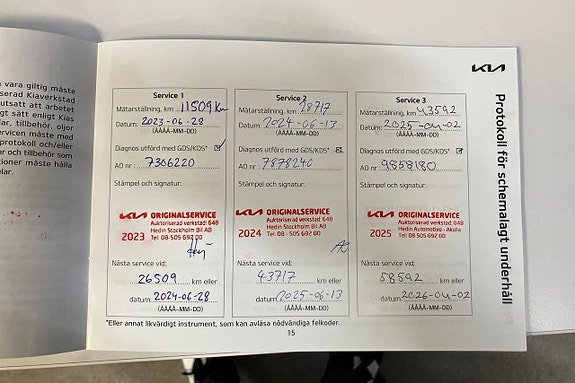 n vara giltig måste
serad Kiaverkstad
utsatt att arbetet
gt sätt enligt Kias
lar, tillbehör, oljor
ervicen måste med
protokoll och/eller
ar och tillbehör som
tioner måste hålla
elar.
KIA
Protokoll för schemalagt underhåll
Service 1
Mätarställning, km 11509 Km
Datum: 2023-06-28
(ÅÅÅÅ-MM-DD)
Diagnos utförd med GDS/KDS*
AO nr: 7306220
Stämpel och signatur:
KIA ORIGINALSERVICE
Auktoriserad verkstad: 648
Hedin Stockholm Bil AB
2023 Tel: 08-505 692 00
Nästa service vid:
26509 km eller
datum 2024-06-28
(ÅÅÅÅ-MM-DD)
Service 2
Mätarställning, km 28717
Datum: 2024-06-13
(ÅÅÅÅ-MM-DD)
Diagnos utförd med GDS/KDS*
AO nr: 7878240
Stämpel och signatur:
KIA ORIGINALSERVICE
Auktoriserad verkstad: 648
Hedin Stockholm Bil AB
2024 Tel: 08-505 692 00
Nästa service vid:
43717 km eller
datum 2025-06-13
(ÅÅÅÅ-MM-DD)
Service 3
Mätarställning, km 43592
Datum: 2025-04-02
(ÅÅÅÅ-MM-DD)
Diagnos utförd med GDS/KDS*
AO nr: 9858180
Stämpel och signatur:
KIA ORIGINALSERVICE
Auktoriserad verkstad: 648
Hedin Automotive - Akalla
2025 Tel: 08-505 692 00
Nästa service vid:
58592 km eller
datum 2026-04-02
(ÅÅÅÅ-MM-DD)
*Eller annat likvärdigt instrument, som kan avläsa nödvändiga felkoder.
15